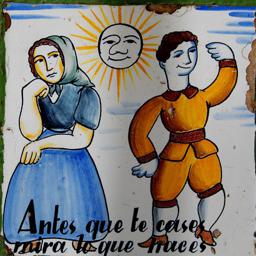 Antes que te cases
mira lo que haces